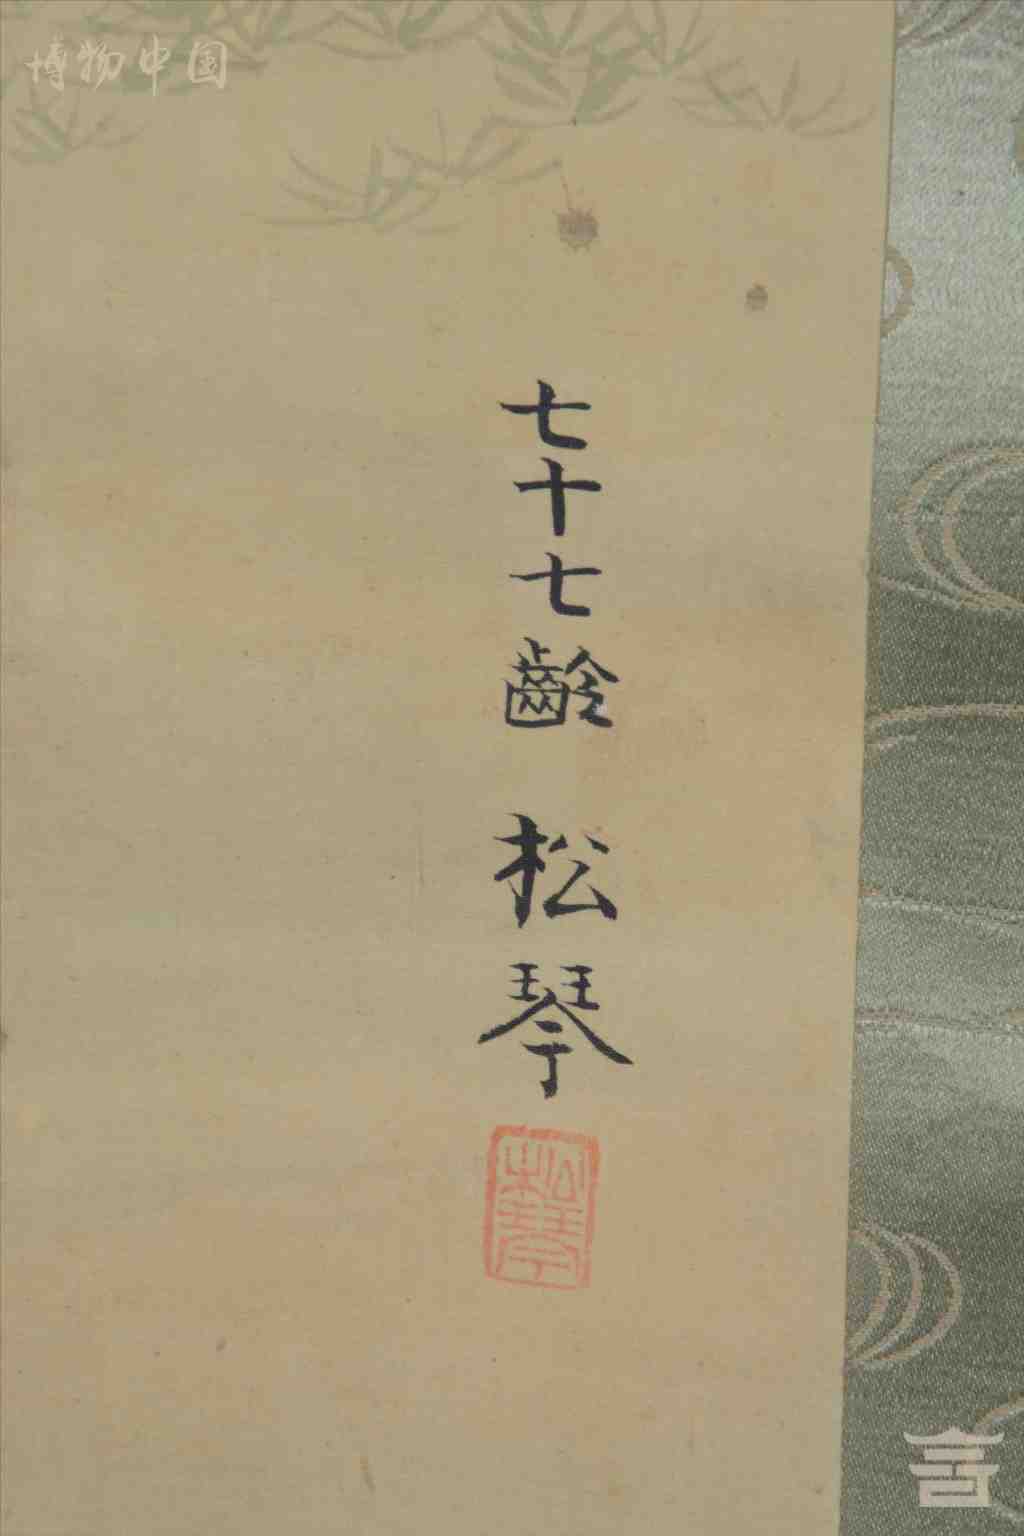 博物中国
七十七齡 松琴
松琴